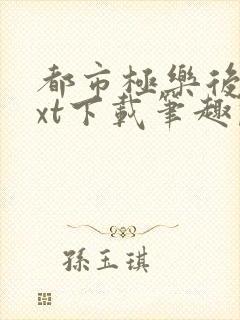 都市極樂後
xt下載筆趣
孫玉琪